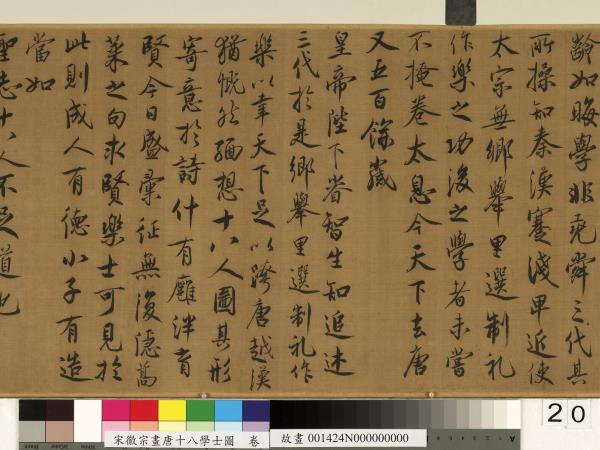 齡如晦學非堯舜三代其
所操知秦漢蹇淺卑近使
太宗無鄉舉里選制礼
作樂之功後之學者未嘗
不掩卷太息今天下去唐
又五百餘歲
皇帝陛下睿智生知追述
三代於是鄉舉里選制礼作
樂以幸天下足以跨唐越漢
猶怳然緬想十八人圖其形
寄意於詩什有廱泮育
賢今日盛彙征無復隱蒿
萊之句求賢樂士可見於
此則成人有德小子有造
當如
聖志十八人不足道也
宋徽宗畫唐十八學士圖 卷
故畫 001424N000000000
20